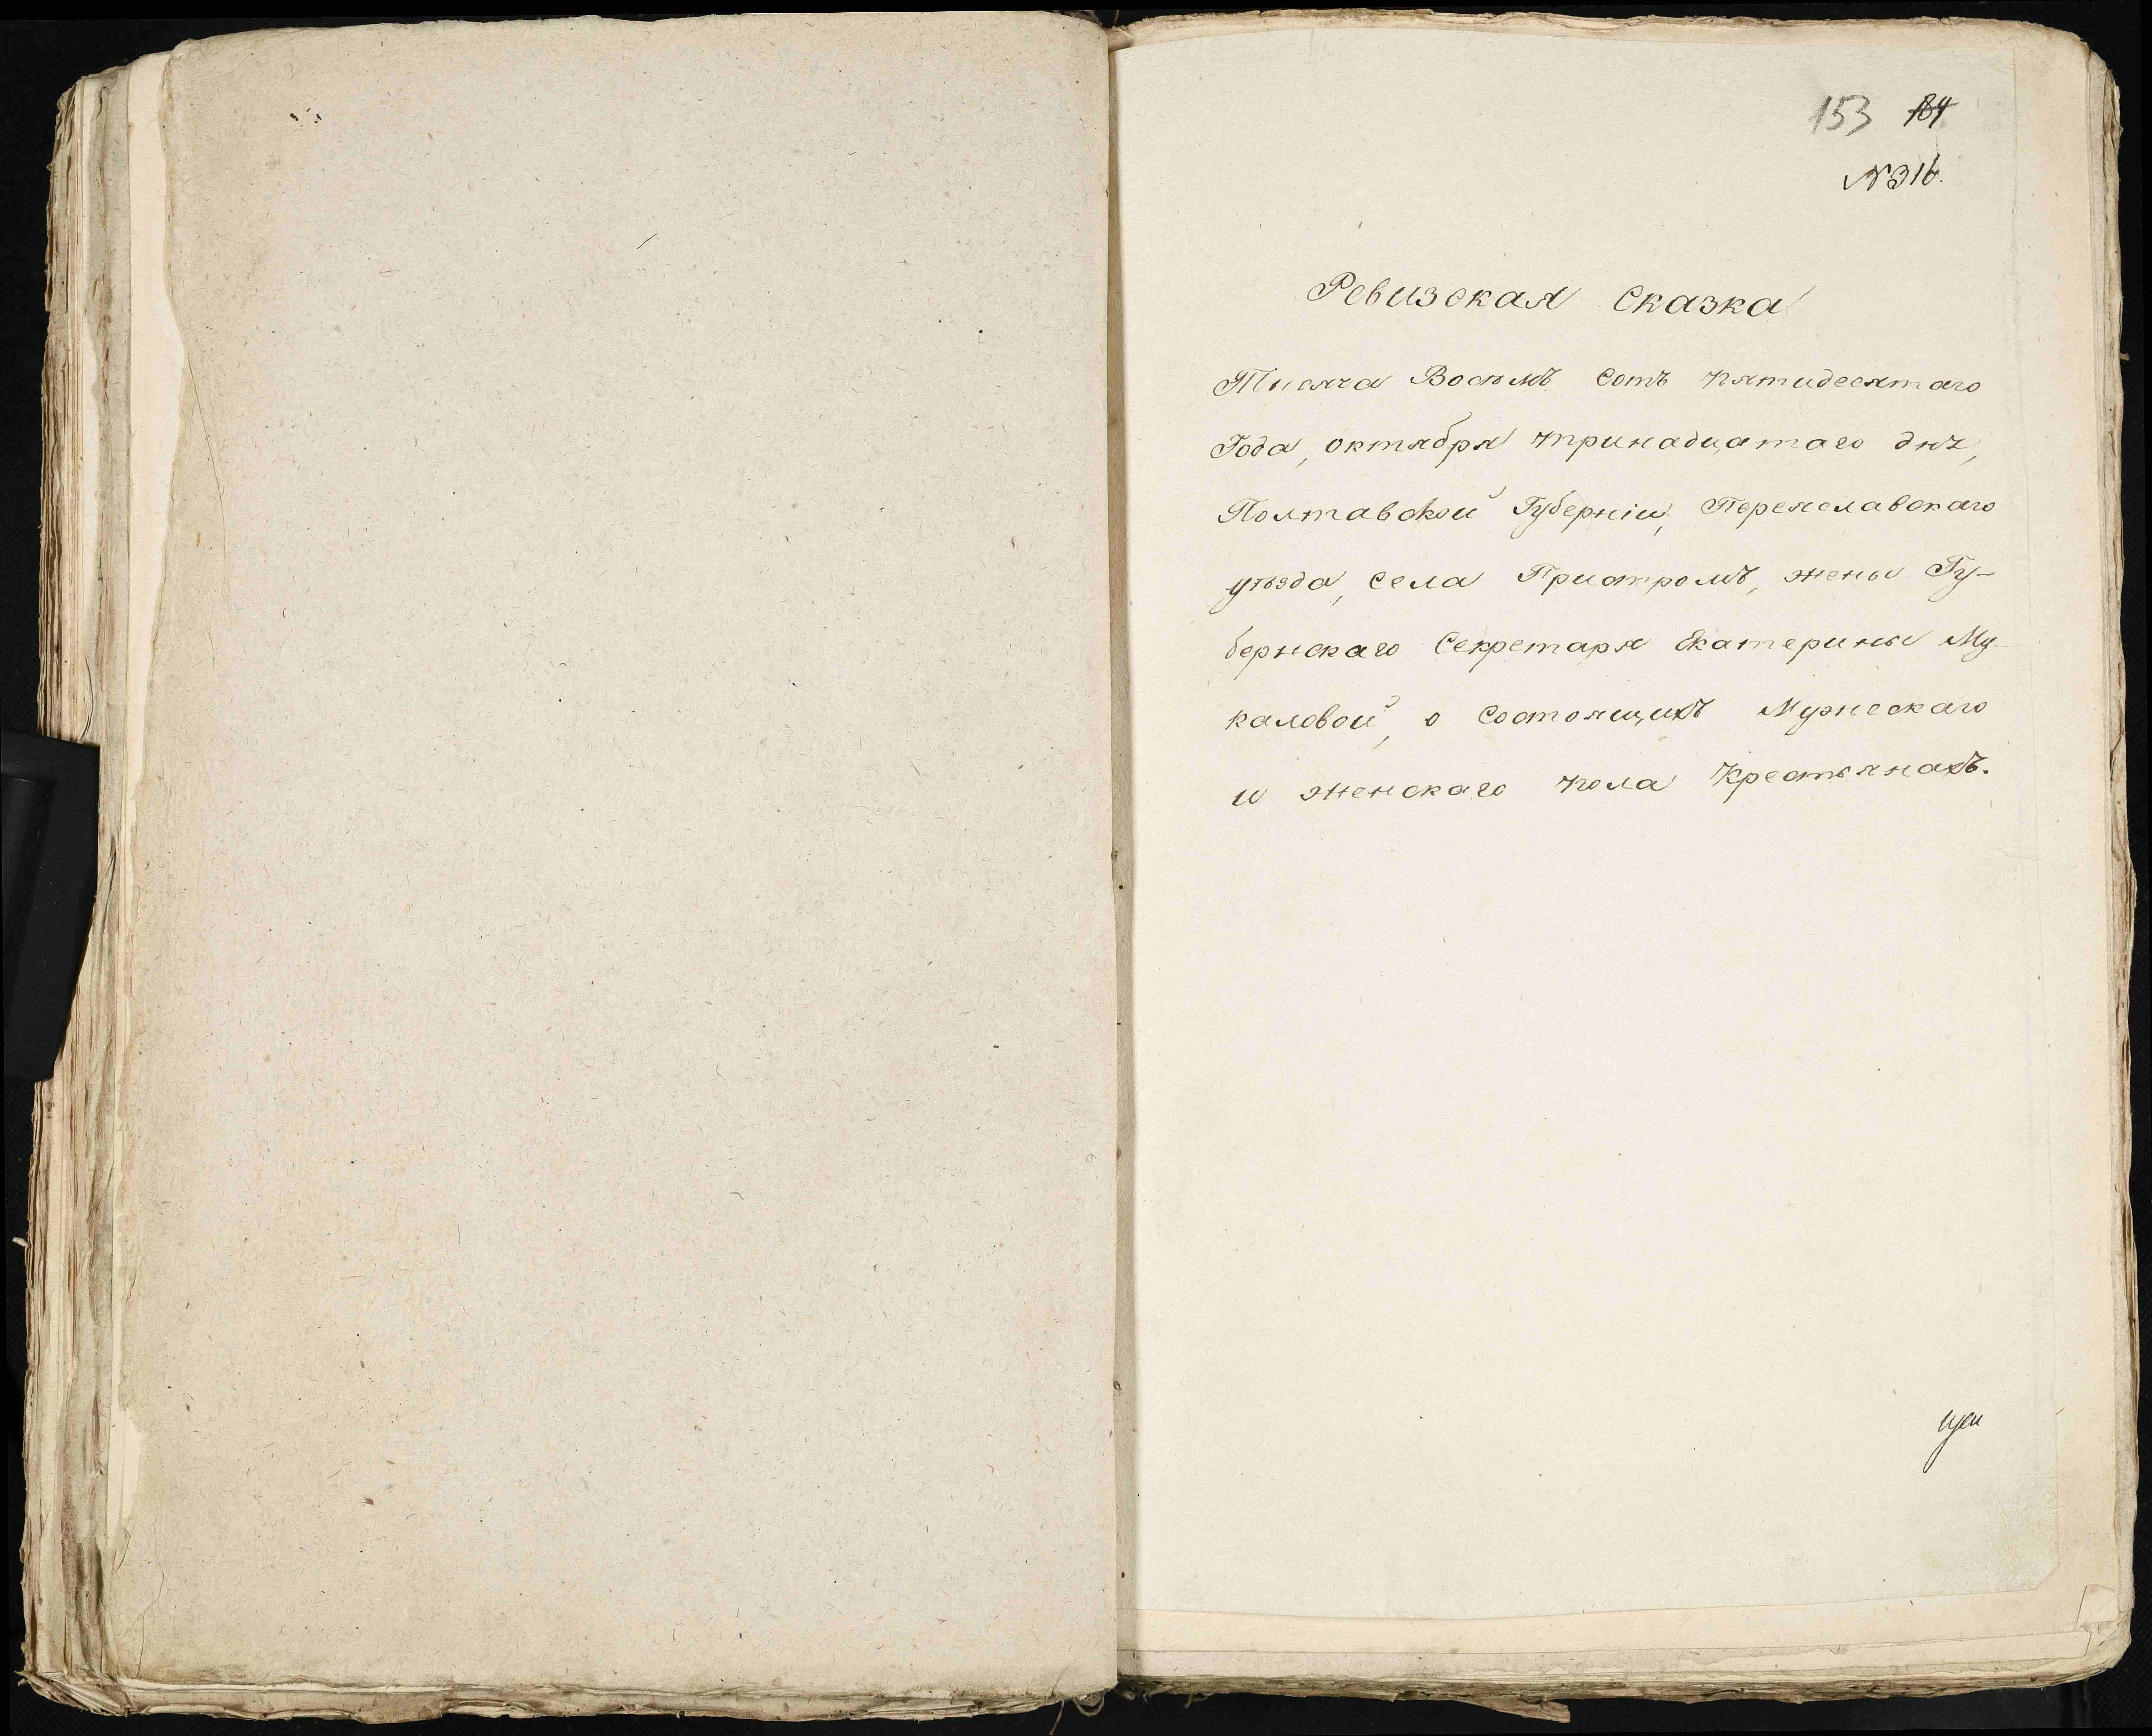 153 184
№ 316.
Ревизская Сказка
Тысяча Восемъ сотъ пятидесятаго
Года, октября тринадцатаго дня,
Полтавской Губерніи, Переяславскаго
уѣзда, села Пристромъ, жены Гу-
бернскаго Секретаря Екатерины Му-
каловой, о состоящихъ Мужескаго
и женскаго пола Крестьянахъ.